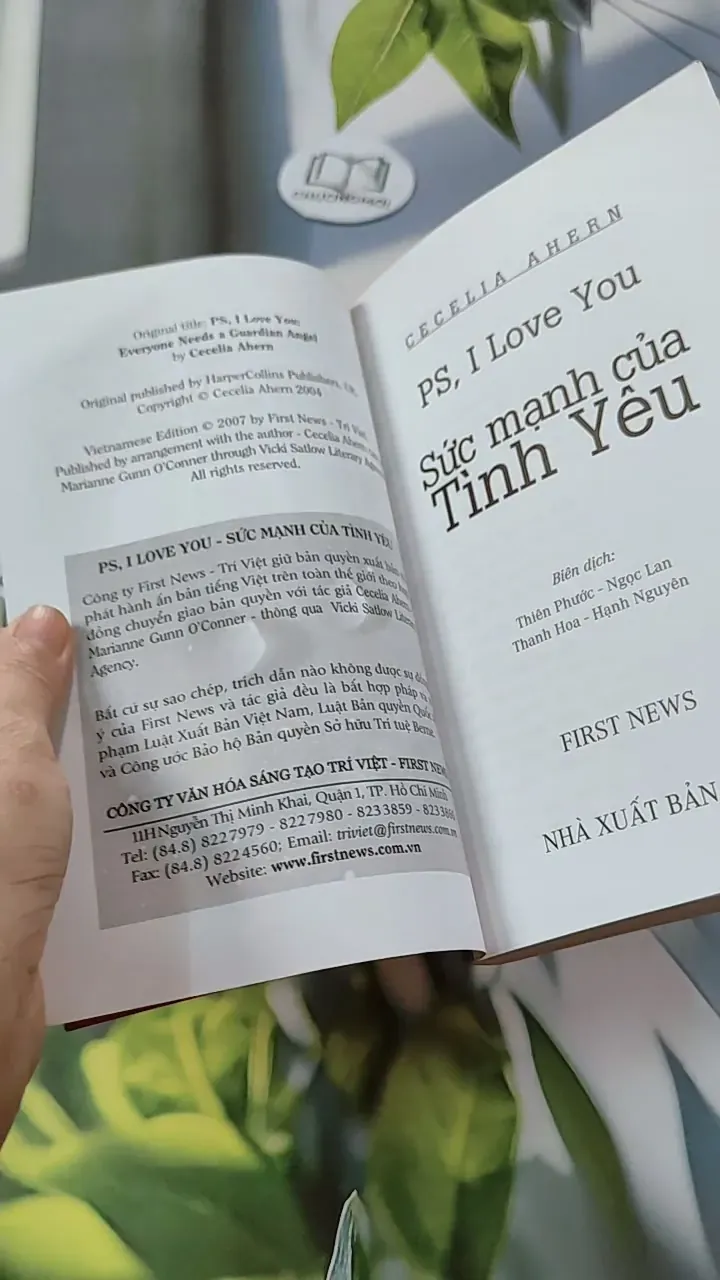 Original title: PS, I Love You:
Everyone Needs a Guardian Angel
by Cecelia Ahern
Original published by HarperCollins Publishers,
Copyright © Cecelia Ahern 2004
Vietnamese Edition © 2007 by First News - Trí Việt
Published by arrangement with the author - Cecelia Ahern
Marianne Gunn O'Conner through Vicki Satlow Literary Agency
All rights reserved.
PS, I LOVE YOU - SỨC MẠNH CỦA TÌNH YÊU
Công ty First News - Trí Việt giữ bản quyền xuất bản
phát hành ấn bản tiếng Việt trên toàn thế giới theo
đồng chuyển giao bản quyền với tác giả Cecelia Ahern
Marianne Gunn O'Conner - thông qua Vicki Satlow
Agency.
Bất cứ sự sao chép, trích dẫn nào không được sự
ý của First News và tác giả đều là bất hợp pháp
phạm Luật Xuất Bản Việt Nam, Luật Bản quyền Quốc
và Công ước Bảo hộ Bản quyền Sở hữu Trí tuệ Berne
CÔNG TY VĂN HÓA SÁNG TẠO TRÍ VIỆT - FIRST NEWS
11HNguyễn Thị Minh Khai, Quận 1, TP. Hồ Chí Minh
Tel: (84.8) 8227979 - 8227980 - 8233859
Fax: (84.8) 8224560; Email: triviet@firstnews.com.vn
Website: www.firstnews.com.vn
CECELIA AHERN
PS, I Love You
Sức mạnh của
Tình Yêu
Biên dịch:
Thiên Phước - Ngọc Lan
Thanh Hoa - Hạnh Nguyên
FIRST NEWS
NHÀ XUẤT BẢN